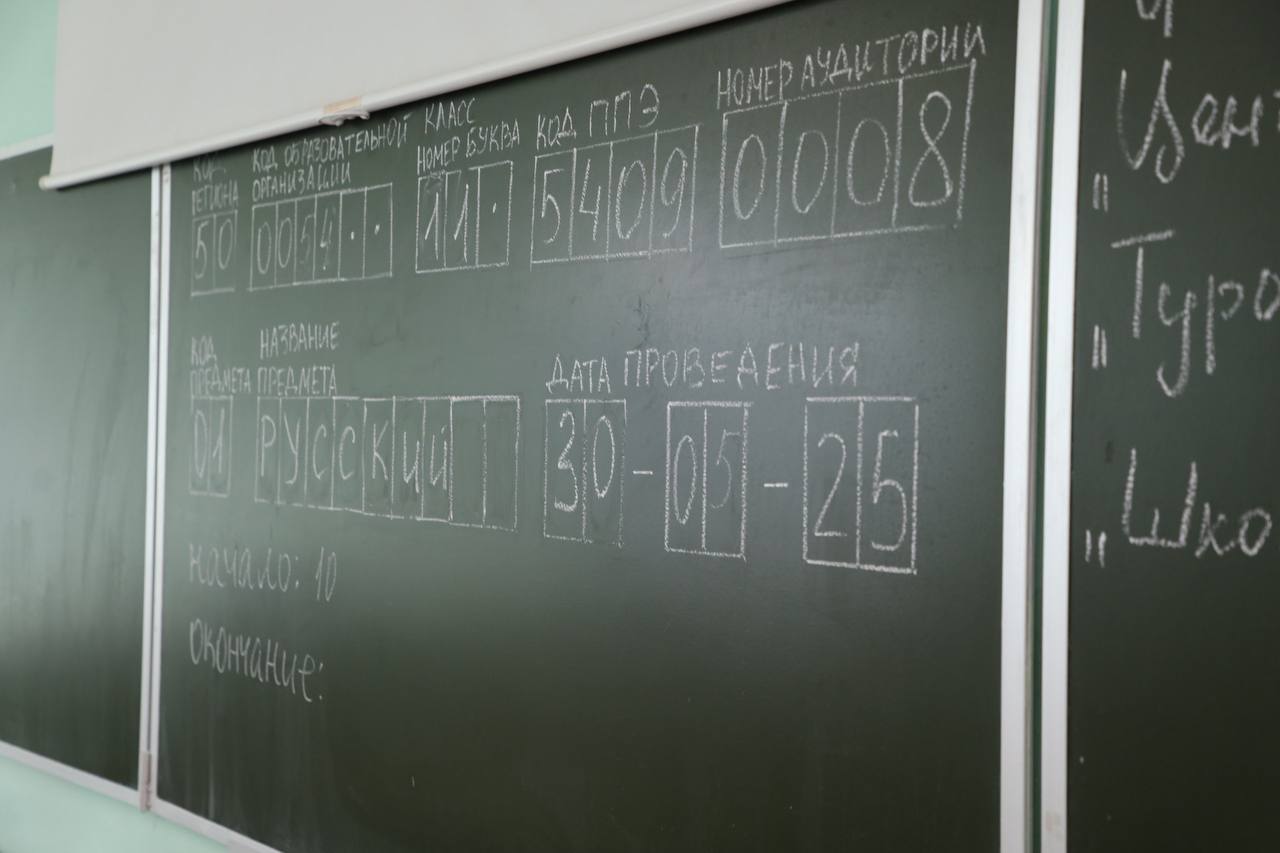 КОД РЕГИОНА
50
КОД ОБРАЗОВАТЕЛЬНОЙ ОРГАНИЗАЦИИ
0054··
КЛАСС
НОМЕР БУКВА
11·
КОД ППЭ
5409
НОМЕР АУДИТОРИИ
0008
КОД ПРЕДМЕТА
01
НАЗВАНИЕ ПРЕДМЕТА
РУССКИЙ
ДАТА ПРОВЕДЕНИЯ
30-05-25
начало: 10
окончание:
Цен
"
Туро
"
" Шко